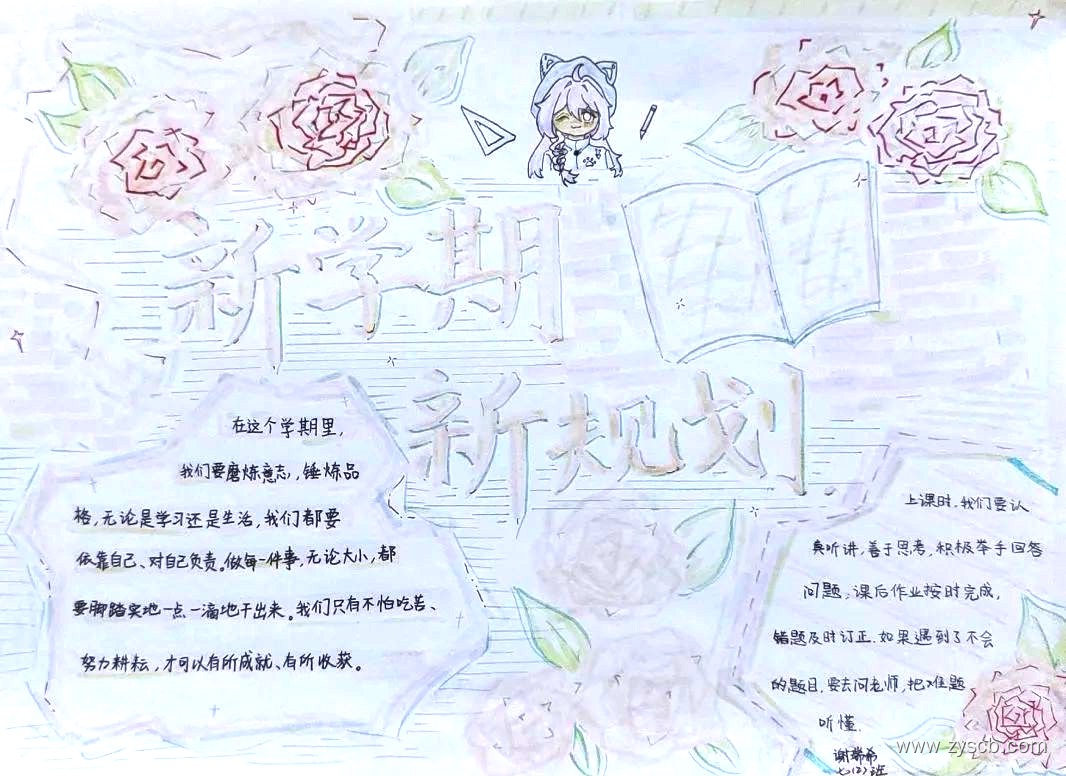 新学期
新规划
在这个学期里，
我们要磨炼意志，锤炼品
格，无论是学习还是生活，我们都要
依靠自己、对自己负责。做每一件事，无论大小，都
要脚踏实地一点一滴地干出来。我们只有不怕吃苦、
努力耕耘，才可以有所成就、有所收获。
上课时，我们要认
真听讲，善于思考，积极举手回答
问题，课后作业按时完成，
错题及时订正．如果遇到了不会
的题目，要去问老师，把难题
听懂．
谢瑞希
七(2)班
www.zyscb.com